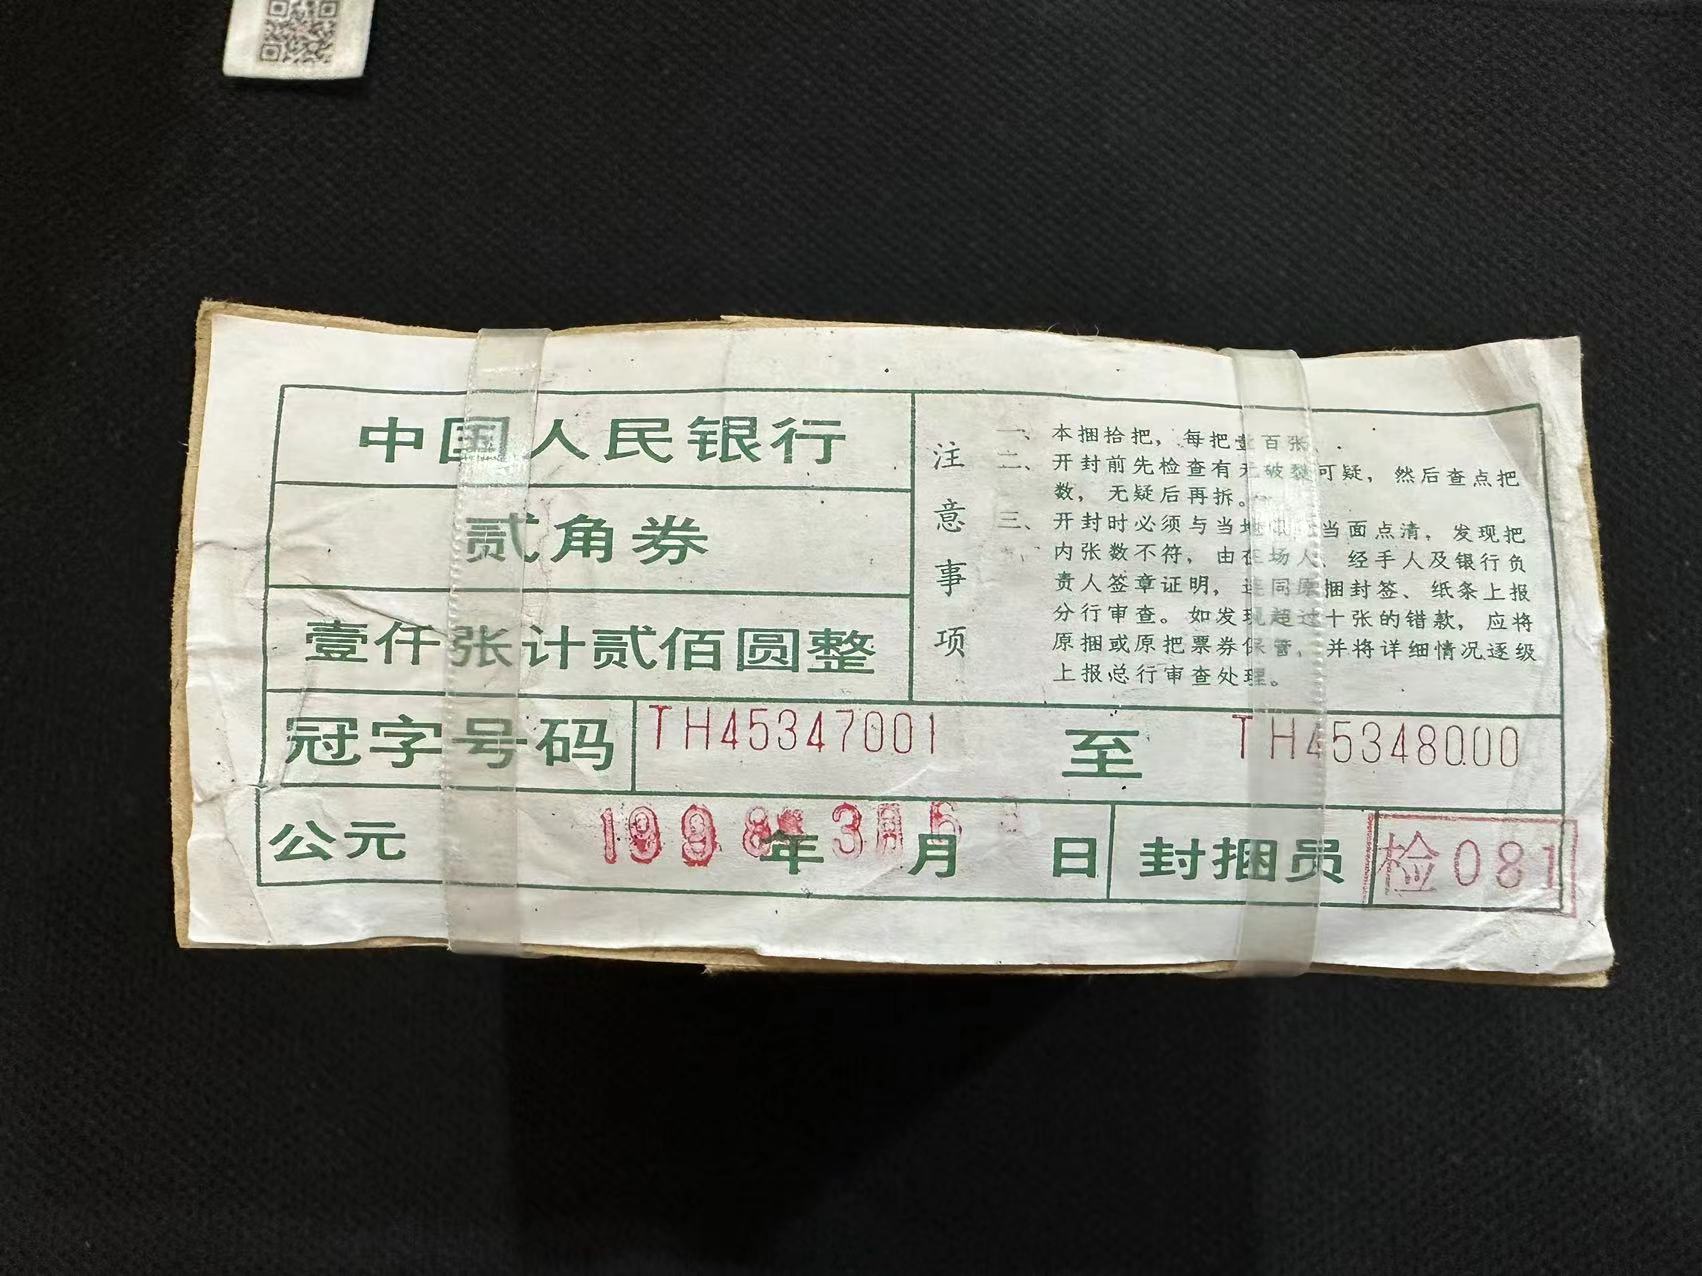 中国人民银行
贰角券
壹仟张计贰佰圆整
注意事项
一、本捆拾把，每把壹百张．
二、开封前先检查有无破裂可疑，然后查点把
数，无疑后再拆。
三、开封时必须与当地 当面点清，发现把
内张数不符，由在场人、经手人及银行负
责人签章证明，连同原捆封签、纸条上报
分行审查。如发现超过十张的错款，应将
原捆或原把票券保管，并将详细情况逐级
上报总行审查处理。
冠字号码 TH45347001 至 TH45348000
公元 1998年3月 日 封捆员 检081